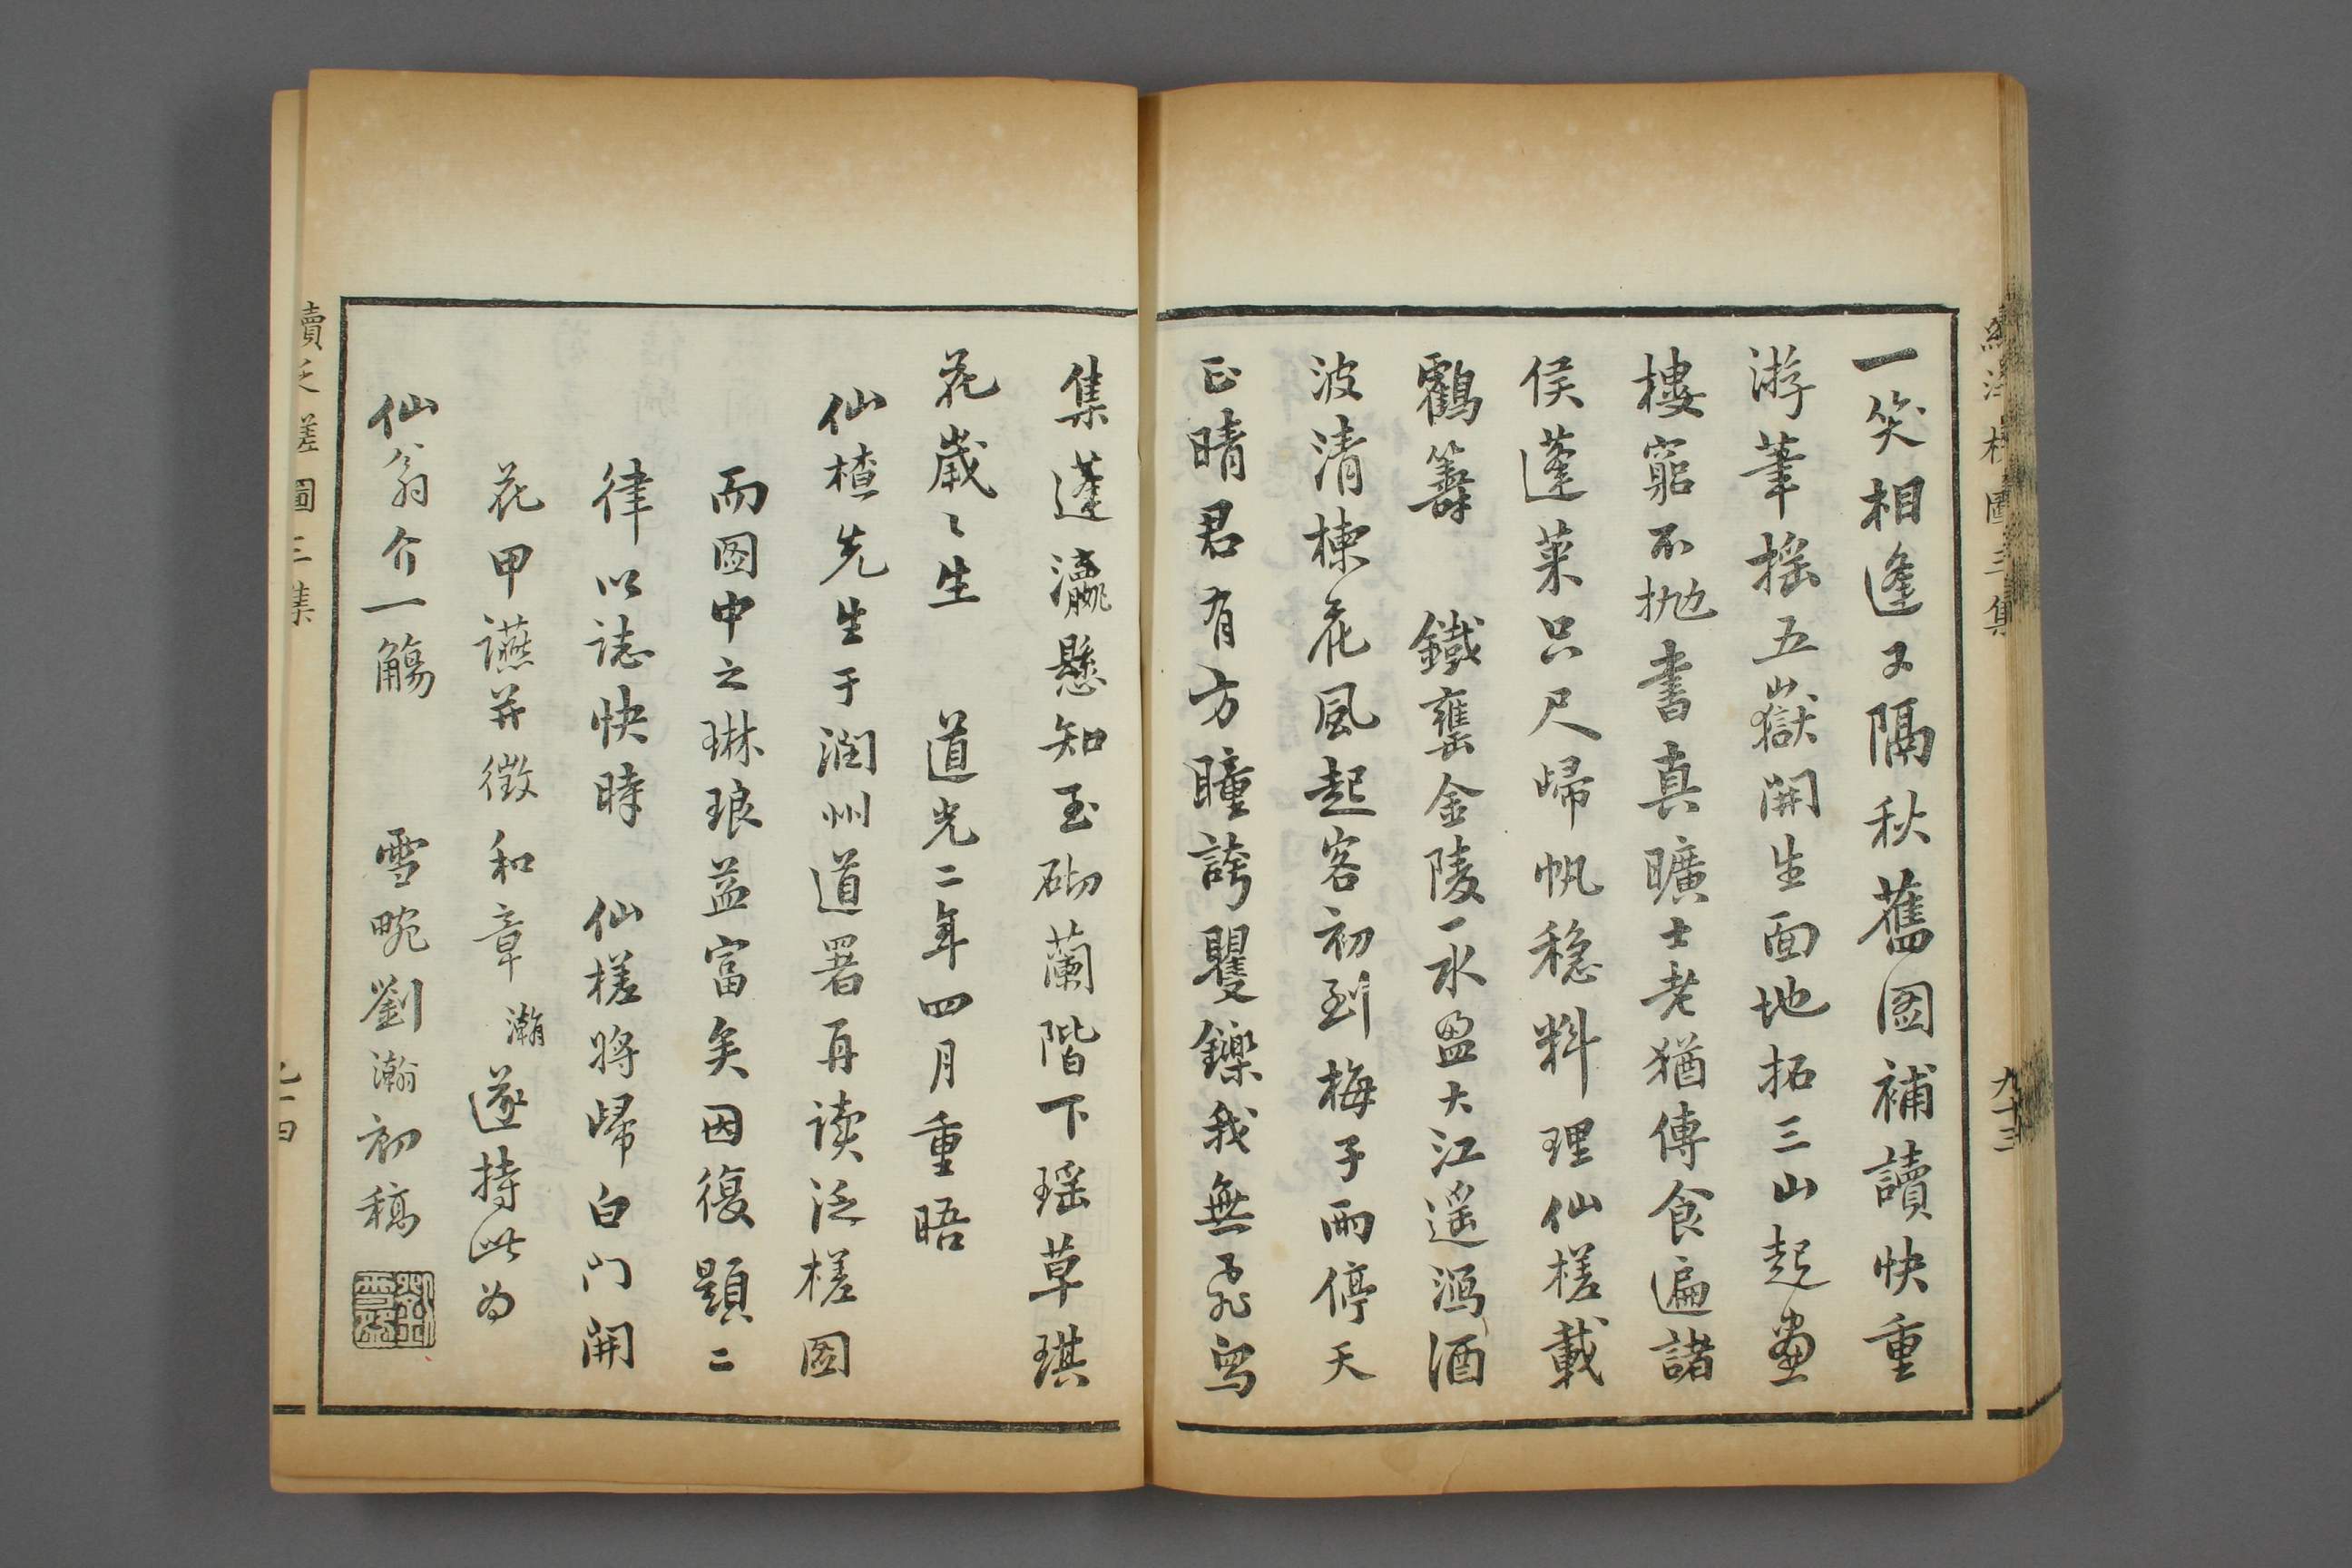 一笑相逢又隔秋舊图補讀快重
游筆摇五嶽開生面地拓三山起畫
樓窮不抛書真曠士老猶傳食遍諸
侯蓬萊只尺歸帆穏料理仙槎載
鶴籌　鐵甕金陵一水盈大江遥酒
波清楝花風起客初到梅子雨停天
正晴君有方瞳誇矍鑠我無飛舄
集蓬瀛懸知玉砌蘭階下瑶草琪
花歲〻生　道光二年四月重晤
仙楂先生于润州道署再读泛槎图
而图中之琳琅益富矣因復題二
律以誌快時　仙槎將歸白门開
花甲讌并徴和章瀚遂持此为
仙翁介一觴　雪畹劉瀚初稿
續泛槎圖三集
九十三
續泛槎圖三集
九十四